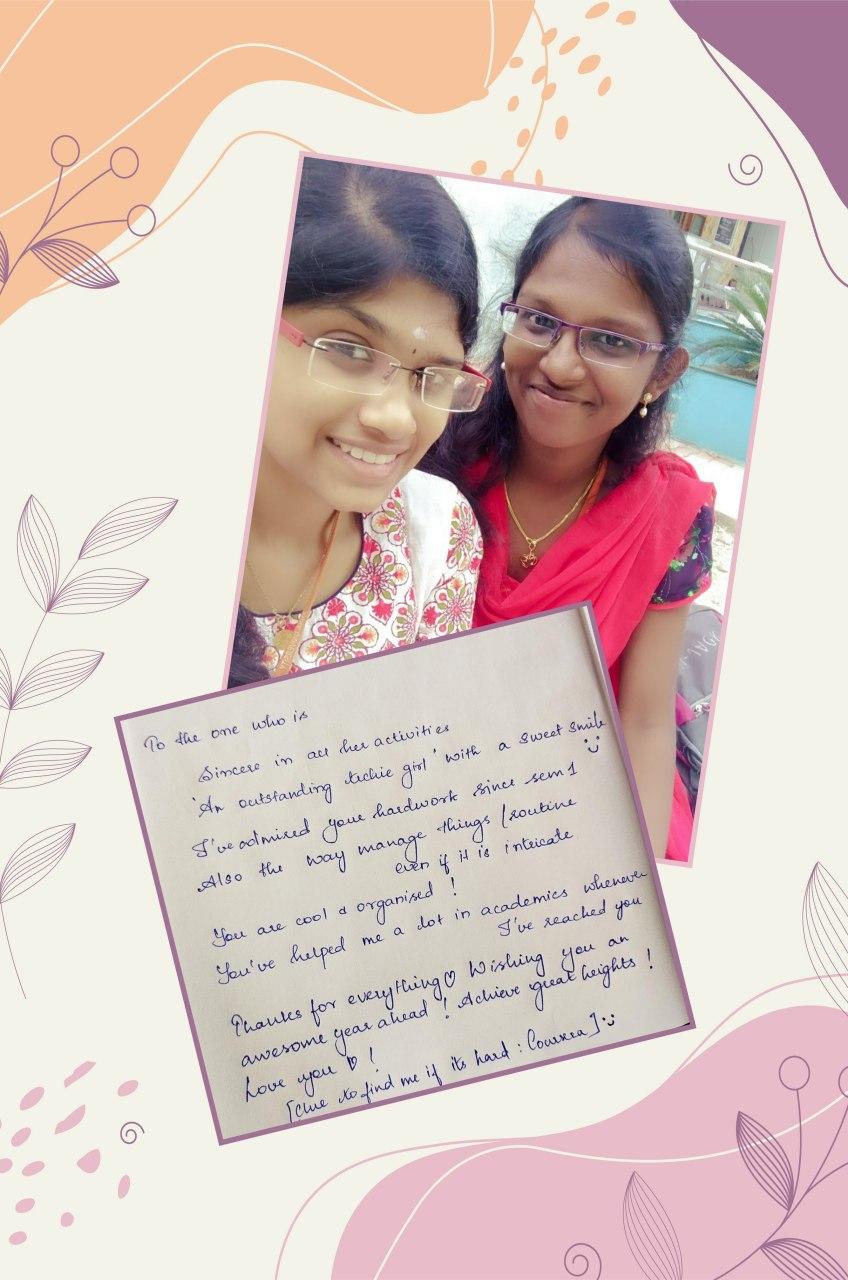 To the one who is
Sincere in all her activities
'An outstanding techie girl' with a sweet smile
I've admired your hardwork since sem 1
Also the way manage things / routine
even if it is intricate
You are cool & organised !
You've helped me a lot in academics whenever
I've reached you
Thanks for everything♡ Wishing you an
awesome year ahead ! Achieve great heights !
Love you ♡ !
[Clue to find me if its hard : Coursea]